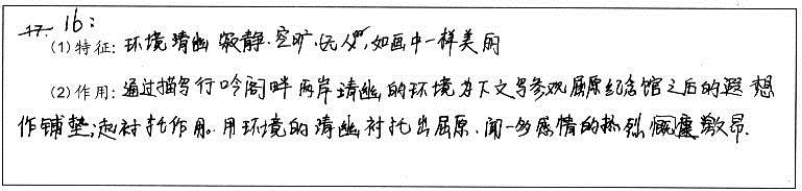 17. 16:
(1)特征: 环境清幽 寂静.空旷.无人,如画中一样美丽
(2)作用:通过描写行吟阁畔两岸清幽的环境为下文写参观屈原纪念馆之后的遐想
作铺垫;起衬托作用。用环境的清幽衬托出屈原.闻一多感情的热烈慷慨激昂.